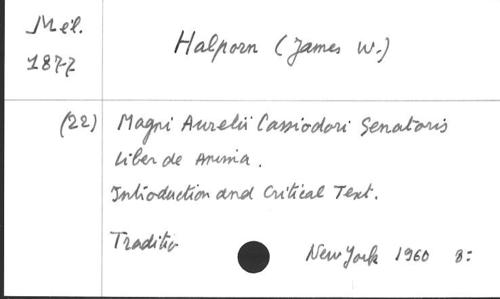 Mél. Halporn (James W.)
1877
(22) Magni Aurelii Cassiodori Senatoris
Liber de Anima.
Introduction and Critical Text.
Traditio New York 1960 8: